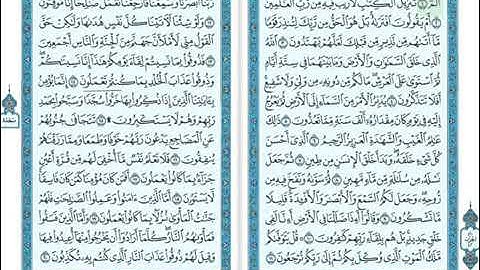 الٓمٓ ١ تَنزِيلُ ٱلْكِتَٰبِ لَا رَيْبَ فِيهِ مِن رَّبِّ ٱلْعَٰلَمِينَ ٢
أَمْ يَقُولُونَ ٱفْتَرَىٰهُ بَلْ هُوَ ٱلْحَقُّ مِن رَّبِّكَ لِتُنذِرَ قَوْمًا
مَّآ أَتَىٰهُم مِّن نَّذِيرٍ مِّن قَبْلِكَ لَعَلَّهُمْ يَهْتَدُونَ ٣ ٱللَّهُ
ٱلَّذِى خَلَقَ ٱلسَّمَٰوَٰتِ وَٱلْأَرْضَ وَمَا بَيْنَهُمَا فِى سِتَّةِ أَيَّامٍ
ثُمَّ ٱسْتَوَىٰ عَلَى ٱلْعَرْشِ مَا لَكُم مِّن دُونِهِۦ مِن وَلِىٍّ وَلَا شَفِيعٍ
أَفَلَا تَتَذَكَّرُونَ ٤ يُدَبِّرُ ٱلْأَمْرَ مِنَ ٱلسَّمَآءِ إِلَى ٱلْأَرْضِ ثُمَّ يَعْرُجُ
إِلَيْهِ فِى يَوْمٍ كَانَ مِقْدَارُهُۥٓ أَلْفَ سَنَةٍ مِّمَّا تَعُدُّونَ ٥ ذَٰلِكَ
عَٰلِمُ ٱلْغَيْبِ وَٱلشَّهَٰدَةِ ٱلْعَزِيزُ ٱلرَّحِيمُ ٦ ٱلَّذِىٓ أَحْسَنَ
كُلَّ شَىْءٍ خَلَقَهُۥ وَبَدَأَ خَلْقَ ٱلْإِنسَٰنِ مِن طِينٍ ٧ ثُمَّ جَعَلَ
نَسْلَهُۥ مِن سُلَٰلَةٍ مِّن مَّآءٍ مَّهِينٍ ٨ ثُمَّ سَوَّىٰهُ وَنَفَخَ فِيهِ مِن
رُّوحِهِۦ وَجَعَلَ لَكُمُ ٱلسَّمْعَ وَٱلْأَبْصَٰرَ وَٱلْأَفْـِٔدَةَ قَلِيلًا
مَّا تَشْكُرُونَ ٩ وَقَالُوٓا۟ أَءِذَا ضَلَلْنَا فِى ٱلْأَرْضِ أَءِنَّا لَفِى
خَلْقٍ جَدِيدٍۭ بَلْ هُم بِلِقَآءِ رَبِّهِمْ كَٰفِرُونَ ١٠ قُلْ يَتَوَفَّىٰكُم
مَّلَكُ ٱلْمَوْتِ ٱلَّذِى وُكِّلَ بِكُمْ ثُمَّ إِلَىٰ رَبِّكُمْ تُرْجَعُونَ ١١
رَبَّنَآ أَبْصَرْنَا وَسَمِعْنَا فَٱرْجِعْنَا نَعْمَلْ صَٰلِحًا إِنَّا مُوقِنُونَ
١٢ وَلَوْ شِئْنَا لَءَاتَيْنَا كُلَّ نَفْسٍ هُدَىٰهَا وَلَٰكِنْ حَقَّ
ٱلْقَوْلُ مِنِّى لَأَمْلَأَنَّ جَهَنَّمَ مِنَ ٱلْجِنَّةِ وَٱلنَّاسِ أَجْمَعِينَ
١٣ فَذُوقُوا۟ بِمَا نَسِيتُمْ لِقَآءَ يَوْمِكُمْ هَٰذَآ إِنَّا نَسِينَٰكُمْ
وَذُوقُوا۟ عَذَابَ ٱلْخُلْدِ بِمَا كُنتُمْ تَعْمَلُونَ ١٤ إِنَّمَا يُؤْمِنُ
بِـَٔايَٰتِنَا ٱلَّذِينَ إِذَا ذُكِّرُوا۟ بِهَا خَرُّوا۟ سُجَّدًا وَسَبَّحُوا۟ بِحَمْدِ
رَبِّهِمْ وَهُمْ لَا يَسْتَكْبِرُونَ ۩ ١٥ تَتَجَافَىٰ جُنُوبُهُمْ
عَنِ ٱلْمَضَاجِعِ يَدْعُونَ رَبَّهُمْ خَوْفًا وَطَمَعًا وَمِمَّا رَزَقْنَٰهُمْ
يُنفِقُونَ ١٦ فَلَا تَعْلَمُ نَفْسٌ مَّآ أُخْفِىَ لَهُم مِّن قُرَّةِ أَعْيُنٍ
جَزَآءًۢ بِمَا كَانُوا۟ يَعْمَلُونَ ١٧ أَفَمَن كَانَ مُؤْمِنًا كَمَن كَانَ فَاسِقًا
لَّا يَسْتَوُۥنَ ١٨ أَمَّا ٱلَّذِينَ ءَامَنُوا۟ وَعَمِلُوا۟ ٱلصَّٰلِحَٰتِ فَلَهُمْ
جَنَّٰتُ ٱلْمَأْوَىٰ نُزُلًۢا بِمَا كَانُوا۟ يَعْمَلُونَ ١٩ وَأَمَّا ٱلَّذِينَ فَسَقُوا۟
فَمَأْوَىٰهُمُ ٱلنَّارُ كُلَّمَآ أَرَادُوٓا۟ أَن يَخْرُجُوا۟ مِنْهَآ أُعِيدُوا۟ فِيهَا
وَقِيلَ لَهُمْ ذُوقُوا۟ عَذَابَ ٱلنَّارِ ٱلَّذِى كُنتُم بِهِۦ تُكَذِّبُونَ ٢٠